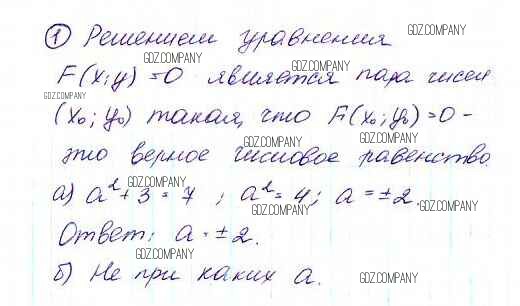 ① Решением уравнения
F(x;y)=0 является пара чисел
(x₀; y₀) такая, что F(x₀; y₀)=0 -
это верное числовое равенство.
а) a²+3=7 ; a²=4; a=±2.
Ответ: a=±2.
б) Не при каких a.
GDZ.COMPANY
GDZ.COMPANY
GDZ.COMPANY
GDZ.COMPANY
GDZ.COMPANY
GDZ.COMPANY
GDZ.COMPANY
GDZ.COMPANY
GDZ.COMPANY
GDZ.COMPANY
GDZ.COMPANY
GDZ.COMPANY